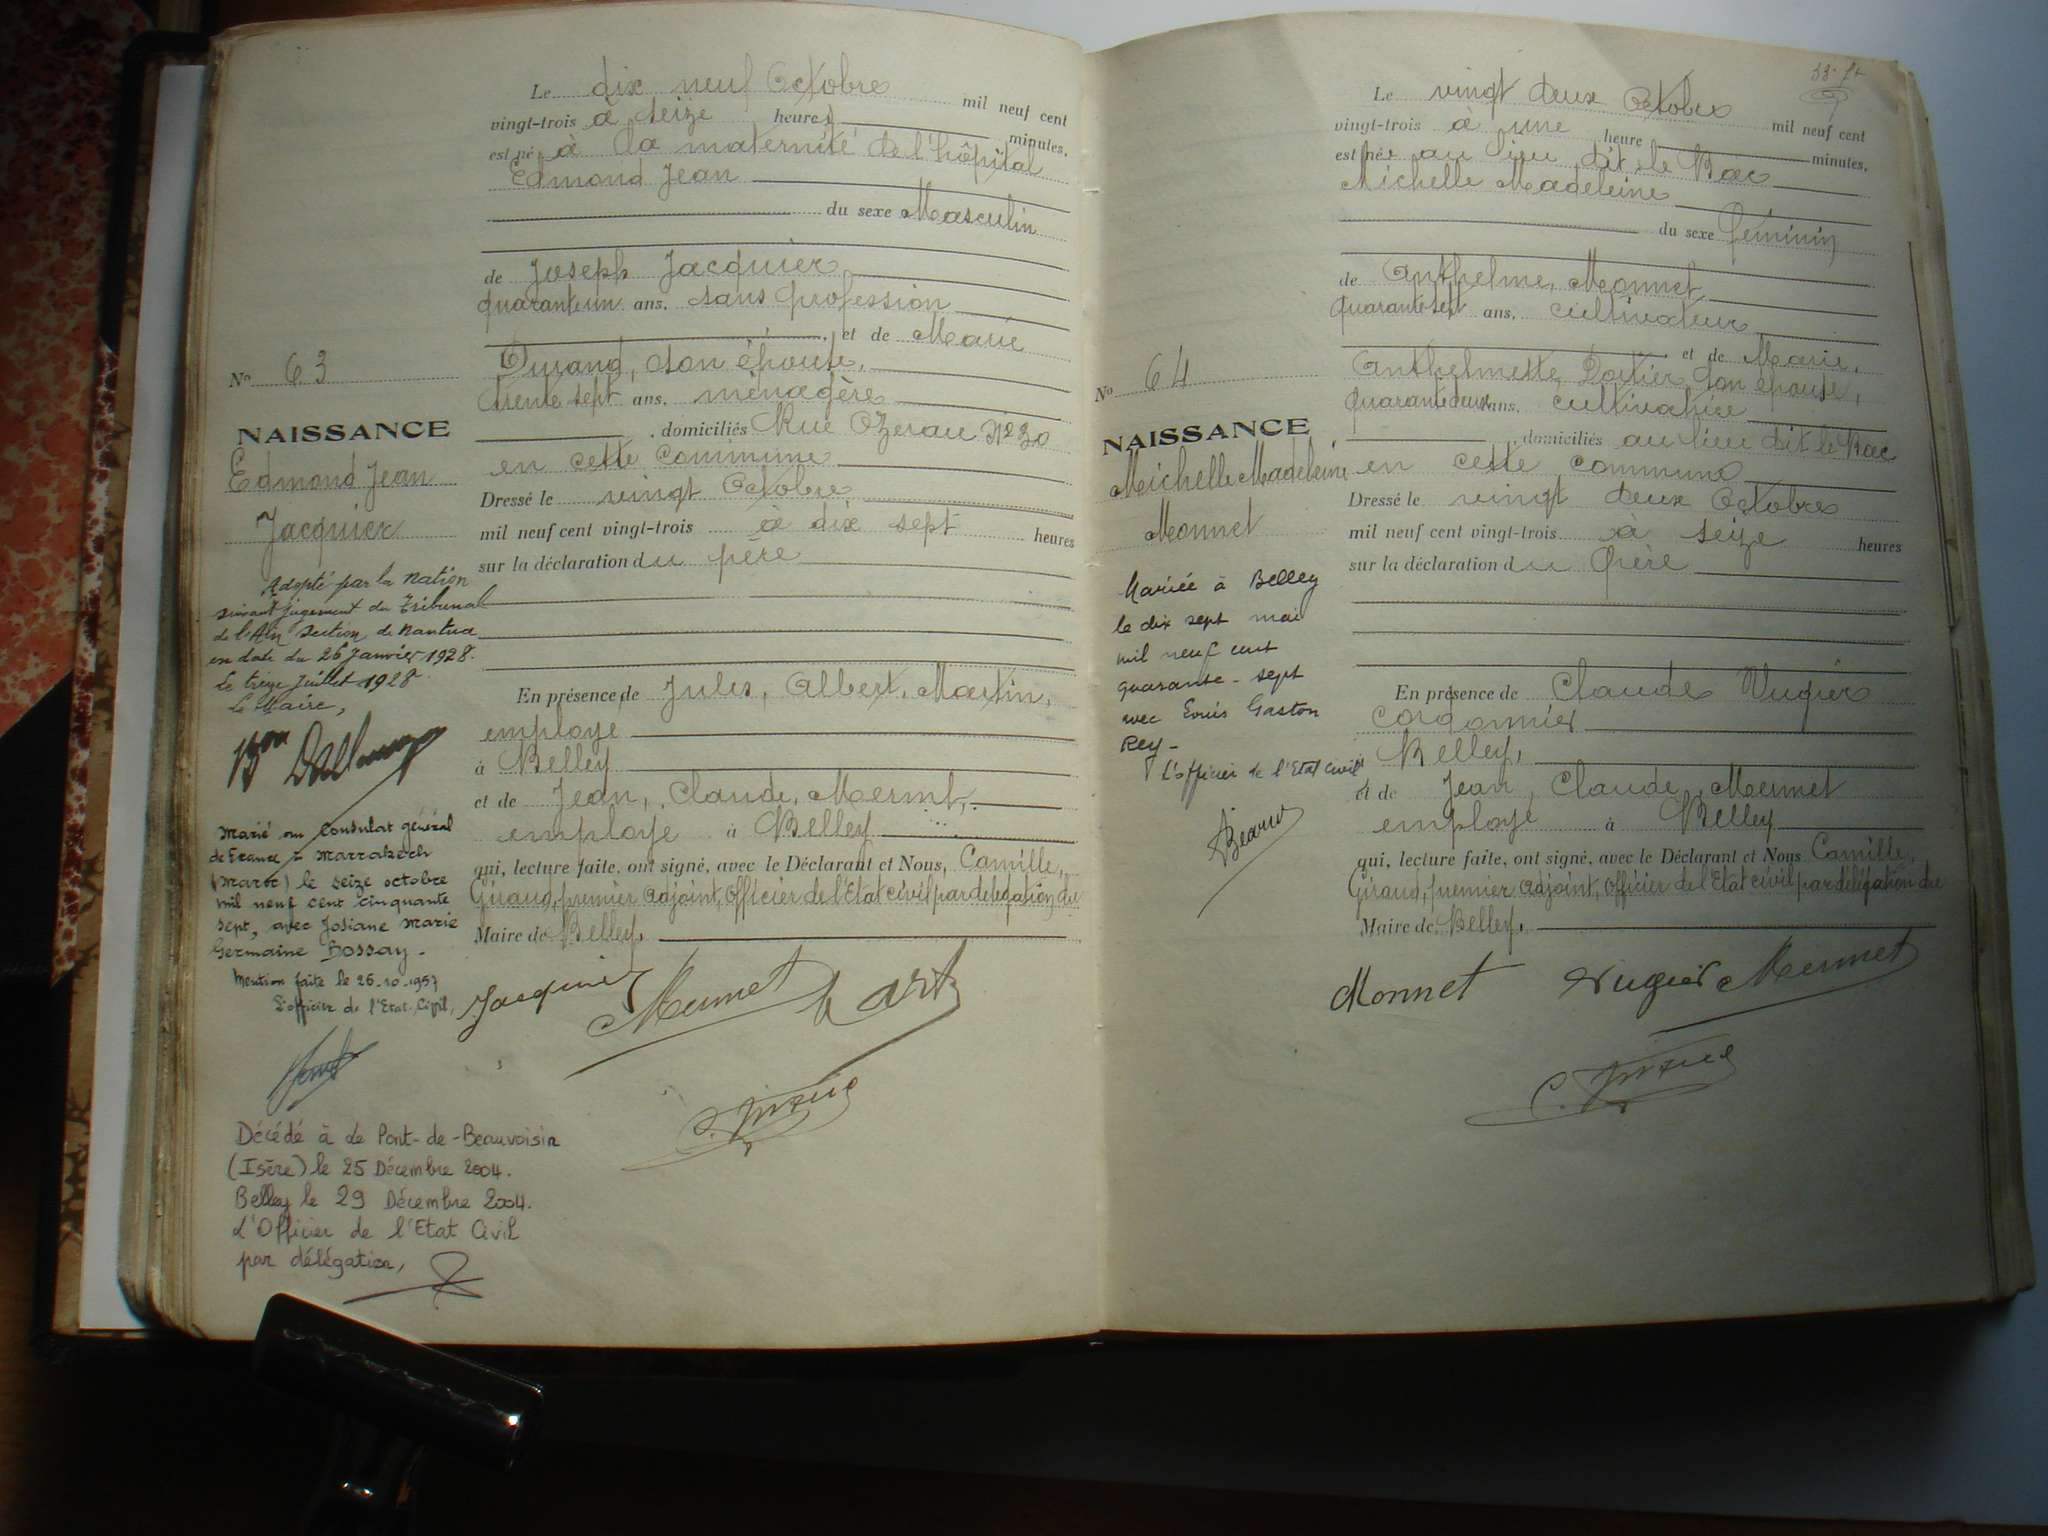 Le dix neuf Octobre mil neuf cent
vingt-trois à seize heures minutes,
est né à la maternité de l'hôpital
Edmond Jean
du sexe Masculin
de Joseph Jacquier
quarante un ans, sans profession
et de Marie
Durand, son épouse,
trente sept ans, ménagère
domiciliés Rue No 30
en cette commune
Dressé le vingt Octobre
mil neuf cent vingt-trois à dix sept heures
sur la déclaration du père
En présence de Jules, Albert, Martin,
employé
à Belley
et de Jean, Claude, Mermet,
employé à Belley
qui, lecture faite, ont signé, avec le Déclarant et Nous, Camille,
Giraud, premier adjoint, officier de l'Etat civil par délégation du
Maire de Belley,
Jacquier Mermet
No 63
NAISSANCE
Edmond Jean
Jacquier
Adopté par la Nation
suivant jugement du Tribunal
de l'Ain section de Nantua
en date du 26 Janvier 1928.
le treize Juillet 1928.
Le Maire,
Marié au Consulat général
de France à Marrakech
(Maroc) le seize octobre
mil neuf cent cinquante
sept, avec Josiane Marie
Germaine Bossay.
Mention faite le 26-10-1957
L'officier de l'Etat Civil,
Décédé à Le Pont-de-Beauvoisin
(Isère) le 25 Décembre 2004.
Belley le 29 Décembre 2004.
L'Officier de l'Etat Civil
par délégation,
Le vingt deux Octobre mil neuf cent
vingt-trois à une heure minutes,
est née au lieu dit le Bac
Michelle Madeleine
du sexe féminin
de Anthelme, Monnet
quarante sept ans, cultivateur
et de Marie,
Anthelmette, son épouse,
quarante deux ans, cultivatrice
domiciliés au lieu dit le Bac
en cette commune
Dressé le vingt deux Octobre
mil neuf cent vingt-trois à seize heures
sur la déclaration du père
En présence de Claude Vugier
cordonnier
à Belley,
et de Jean, Claude, Mermet
employé à Belley
qui, lecture faite, ont signé, avec le Déclarant et Nous Camille,
Giraud, premier adjoint, officier de l'Etat civil par délégation du
Maire de Belley,
Monnet Vugier Mermet
No 64
NAISSANCE
Michelle Madeleine
Monnet
Mariée à Belley
le dix sept mai
mil neuf cent
quarante-sept
avec Louis Gaston
Rey-
L'officier de l'Etat civil